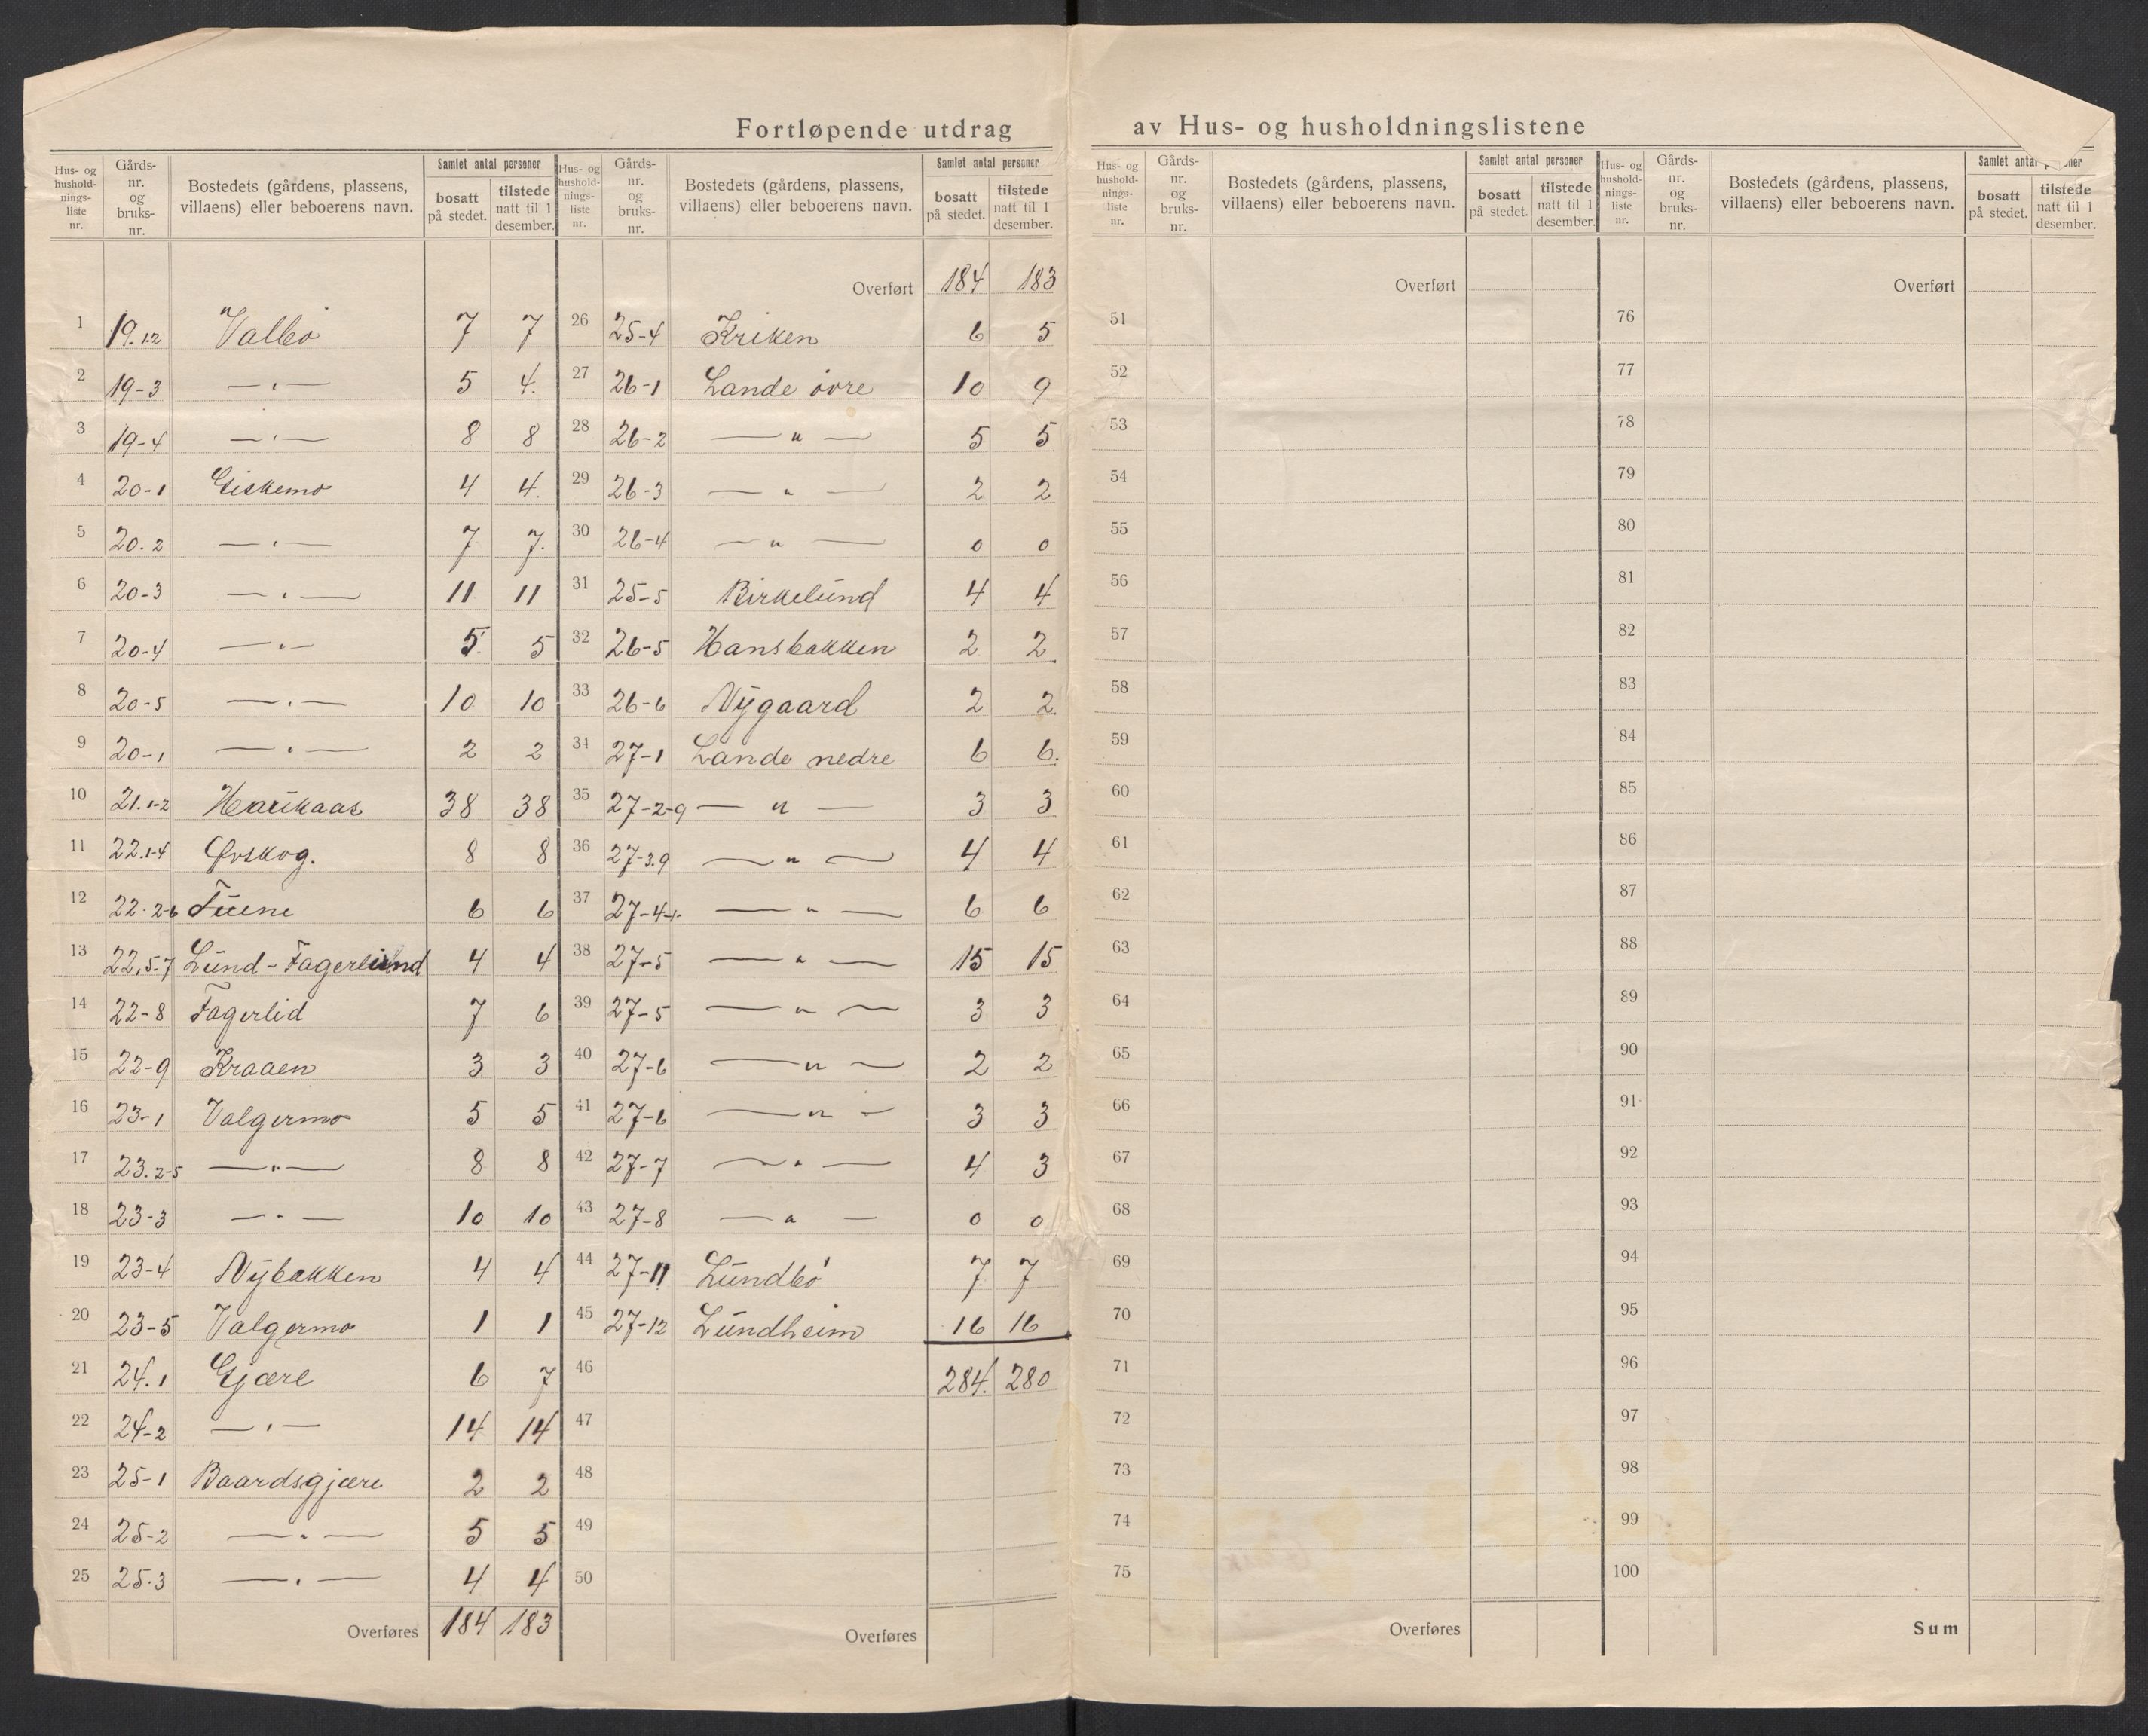 Fortløpende utdrag av Hus- og husholdningslistene
Hus- og hushold-nings-liste nr. | Gårds-nr. og bruks-nr. | Bostedets (gårdens, plassens, villaens) eller beboerens navn. | Samlet antal personer | bosatt på stedet. | tilstede natt til 1 desember.
1 19.1.2 Valbø 7 7
2 19-3 —„— 5 4.
3 19-4 —„— 8 8
4 20-1 Giskemo 4 4.
5 20.2 —„— 7 7.
6 20-3 —„— 11 11
7 20-4 —„— 5 5
8 20-5 —„— 10 10
9 20-1 —„— 2 2
10 21.1-2 Haukaas 38 38
11 22.1-4 Øvskog. 8 8
12 22.2-6 Tuene 6 6
13 22,5-7 Lund-Fagerlund 4 4
14 22-8 Fagerlid 7 6
15 22-9 Kraaen 3 3
16 23-1 Valgermo 5 5
17 23.2-5 —„— 8 8
18 23-3 —„— 10 10
19 23-4 Nybakken 4 4
20 23-5 Valgermo 1 1
21 24.1 Gjære 6 7
22 24-2 —„— 14 14
23 25-1 Baardsgjære 2 2
24 25-2 —„— 5 5
25 25.3 —„— 4 4
Overføres 184 183
Hus- og hushold-nings-liste nr. | Gårds-nr. og bruks-nr. | Bostedets (gårdens, plassens, villaens) eller beboerens navn. | Samlet antal personer | bosatt på stedet. | tilstede natt til 1 desember.
Overført 184 183
26 25-4 Kriken 6 5
27 26-1 Lande øvre 10 9
28 26-2 —„— 5 5
29 26-3 —„— 2 2
30 26-4 —„— 0 0
31 25-5 Birkelund 4 4
32 26-5 Hansbakken 2 2
33 26-6 Nygaard 2 2.
34 27-1 Lande nedre 6 6.
35 27-2-9 —„— 3 3
36 27-3.9 —„— 4 4
37 27-4- —„— 6 6
38 27-5 —„— 15 15
39 27-5 —„— 3 3
40 27-6 —„— 2 2
41 27-6 —„— 3 3
42 27-7 —„— 4 3
43 27-8 —„— 0 0
44 27-11 Lundbø 7 7
45 27-12 Lundheim 16 16
46 284. 280
47
48
49
50
Overføres
Hus- og hushold-nings-liste nr. | Gårds-nr. og bruks-nr. | Bostedets (gårdens, plassens, villaens) eller beboerens navn. | Samlet antal personer | bosatt på stedet. | tilstede natt til 1 desember.
Overført
51
52
53
54
55
56
57
58
59
60
61
62
63
64
65
66
67
68
69
70
71
72
73
74
75
Overføres
Hus- og hushold-nings-liste nr. | Gårds-nr. og bruks-nr. | Bostedets (gårdens, plassens, villaens) eller beboerens navn. | Samlet antal | bosatt på stedet. | tilstede natt til 1 desember.
Overført
76
77
78
79
80
81
82
83
84
85
86
87
88
89
90
91
92
93
94
95
96
97
98
99
100
Sum